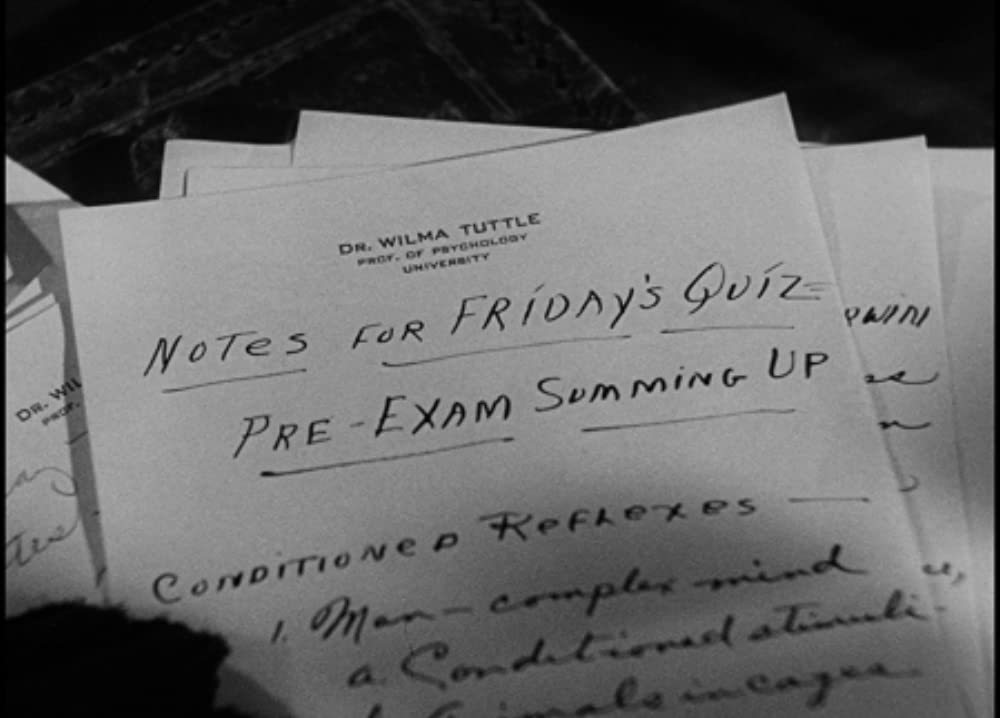 DR. WILMA TUTTLE
PROF. OF PSYCHOLOGY
UNIVERSITY
NOTES FOR FRIDAY'S QUIZ
PRE-EXAM SUMMING UP
CONDITIONED REFLEXES —
1. Man - complex mind
a. Conditioned stimuli -
Animals in cages
DR. WIL
PROF.